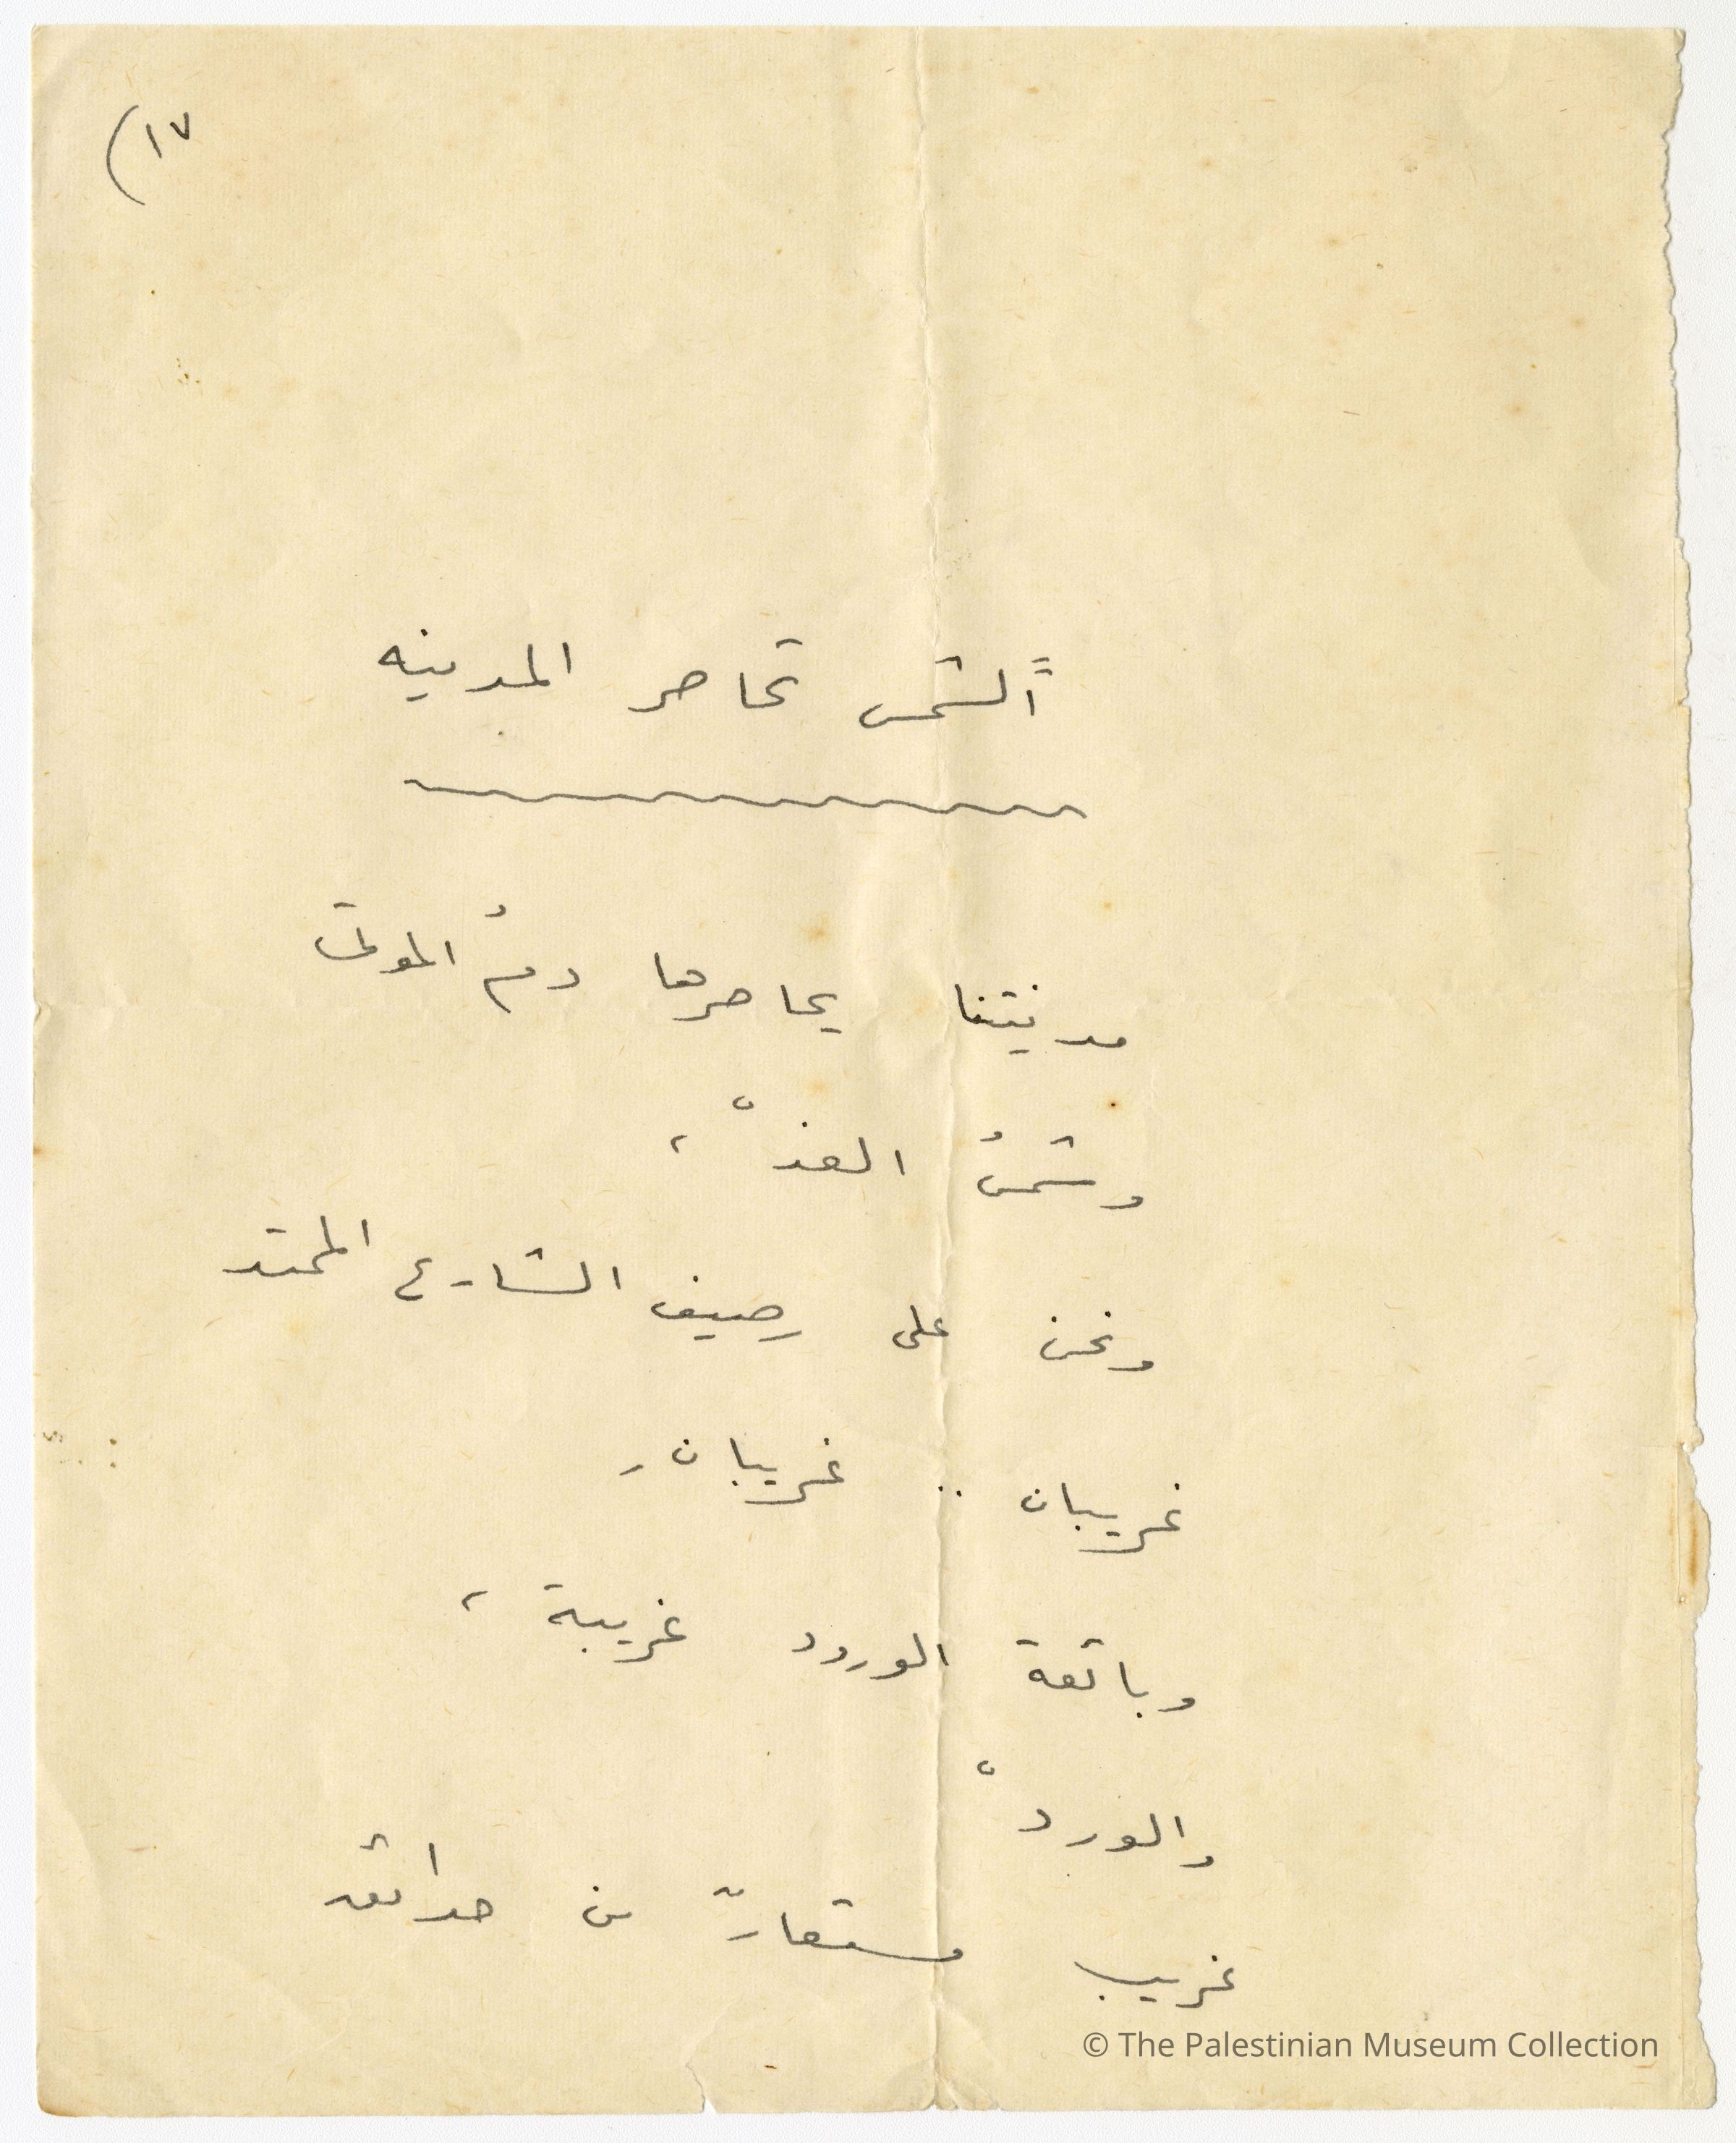 ١٧)
ألشمس تحاصر المدينه
مدينتنا يحاصرها دمُ الموتى
وشمسُ الغدْ ،
ونحن على رصيف الشارع الممتد
غريبان .. غريبان ر
وبائعة الورود غريبة ،
والوردْ
غريب مستعارٌ من حدائق
© The Palestinian Museum Collection